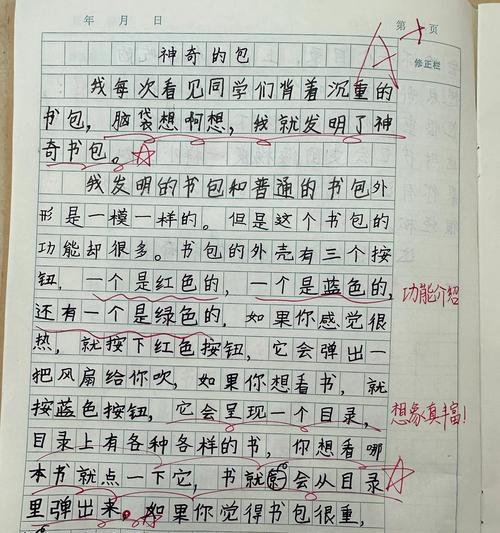 年 月 日
第 页
神奇的包
修正栏
我每次看见同学们背着沉重的
书包，脑袋想啊想，我就发明了神
奇书包。
我发明的书包和普通的书包外
形是一模一样的。但是这个书包的
功能却很多。书包的外壳有三个按
钮，一个是红色的，一个是蓝色的，
功能介绍
还有一个是绿色的。如果你感觉很
热，就按下红色按钮，它会弹出一
把风扇给你吹，如果你想看书，就
按蓝色按钮，它会呈现一个目录，
想象真丰富！
目录上有各种各样的书，你想看哪
本书就点一下它，书就会从目录
里弹出来。如果你觉得书包很重，